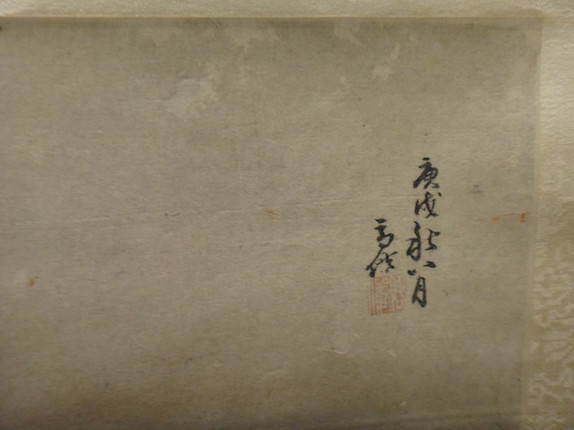 庚戌秋八月
高